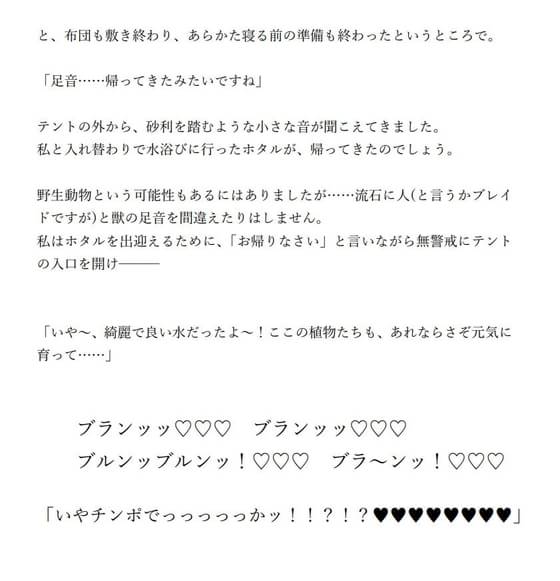 と、布団も敷き終わり、あらかた寝る前の準備も終わったというところで。
「足音……帰ってきたみたいですね」
テントの外から、砂利を踏むような小さな音が聞こえてきました。
私と入れ替わりで水浴びに行ったホタルが、帰ってきたのでしょう。
野生動物という可能性もあるにはありましたが……流石に人(と言うかブレイ
ドですが)と獣の足音を間違えたりはしません。
私はホタルを出迎えるために、「お帰りなさい」と言いながら無警戒にテント
の入口を開け―――
「いや〜、綺麗で良い水だったよ〜！ここの植物たちも、あれならさぞ元気に
育って……」
ブランッッ♡♡♡　ブランッッ♡♡♡
ブルンッブルンッ！♡♡♡　ブラ〜ンッ！♡♡♡
「いやチンポでっっっっっかッ！！？！？♥♥♥♥♥♥♥♥」